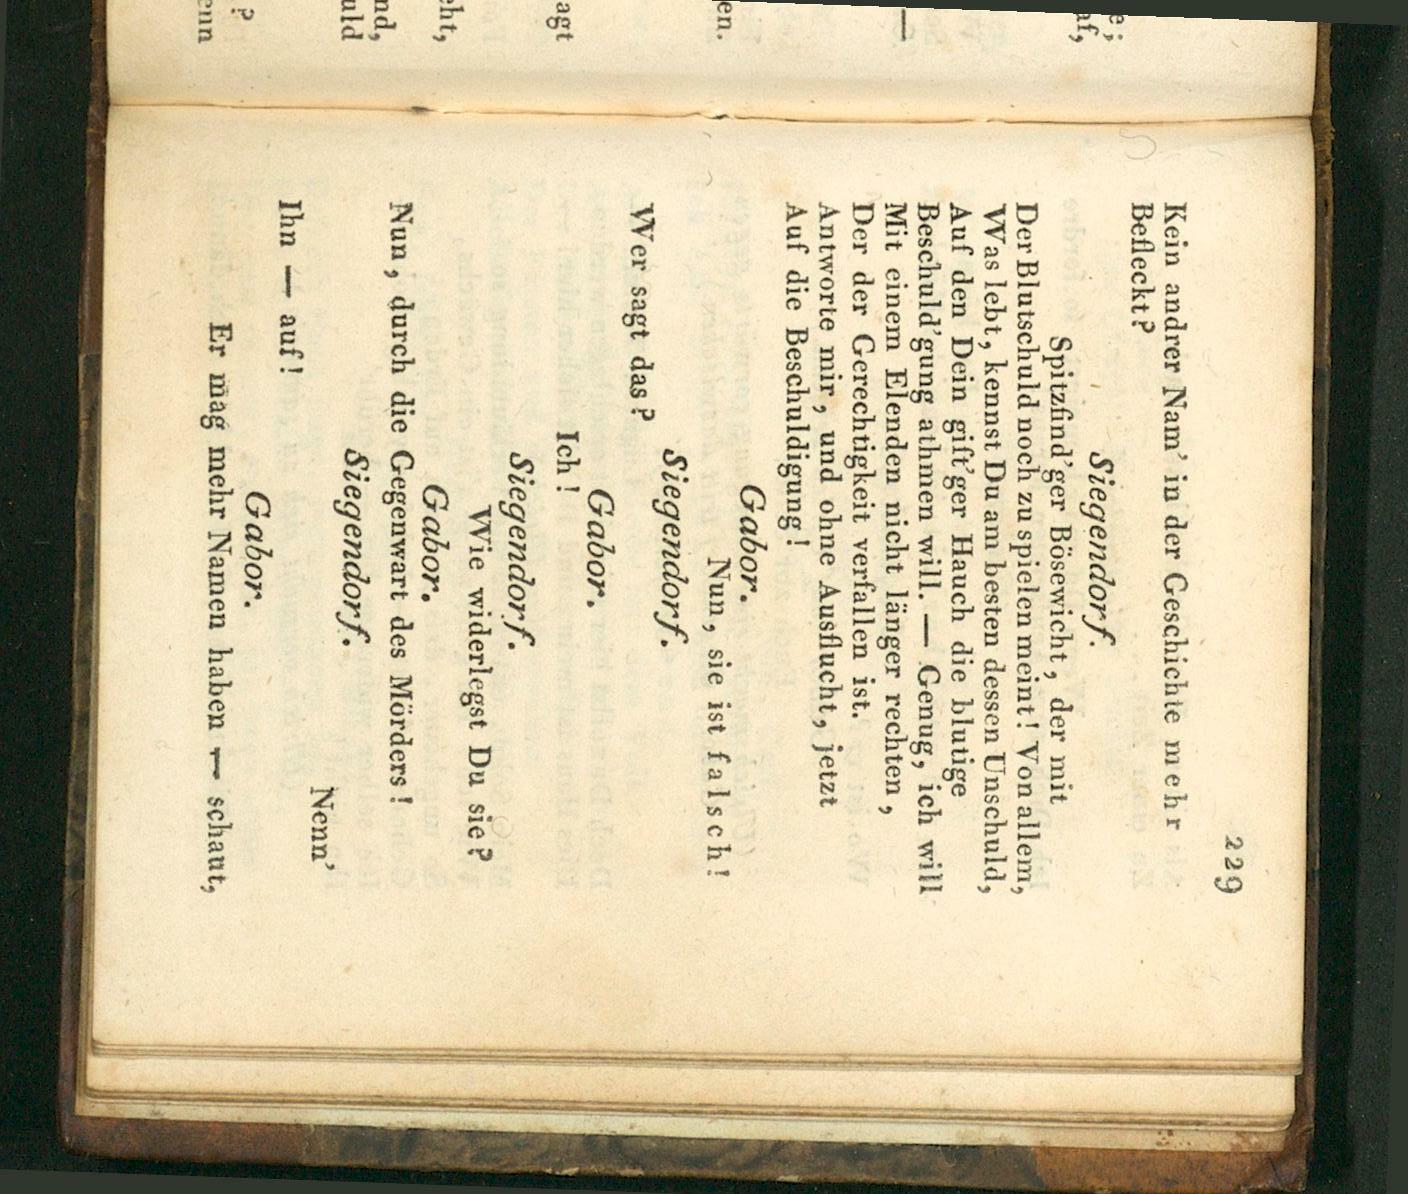 229
Kein andrer Nam' in der Geschichte mehr
Befleckt?
Siegendorf.
Spitzfind'ger Bösewicht, der mit
Der Blutschuld noch zu spielen meint! Von allem,
Was lebt, kennst Du am besten dessen Unschuld,
Auf den Dein gift'ger Hauch die blutige
Beschuld'gung athmen will. — Genug, ich will
Mit einem Elenden nicht länger rechten,
Der der Gerechtigkeit verfallen ist.
Antworte mir, und ohne Ausflucht, jetzt
Auf die Beschuldigung!
Gabor.
Nun, sie ist falsch!
Siegendorf.
Wer sagt das?
Gabor.
Ich!
Siegendorf.
Wie widerlegst Du sie?
Gabor.
Nun, durch die Gegenwart des Mörders!
Siegendorf.
Nenn'
Ihn — auf!
Gabor.
Er mag mehr Namen haben — schaut,